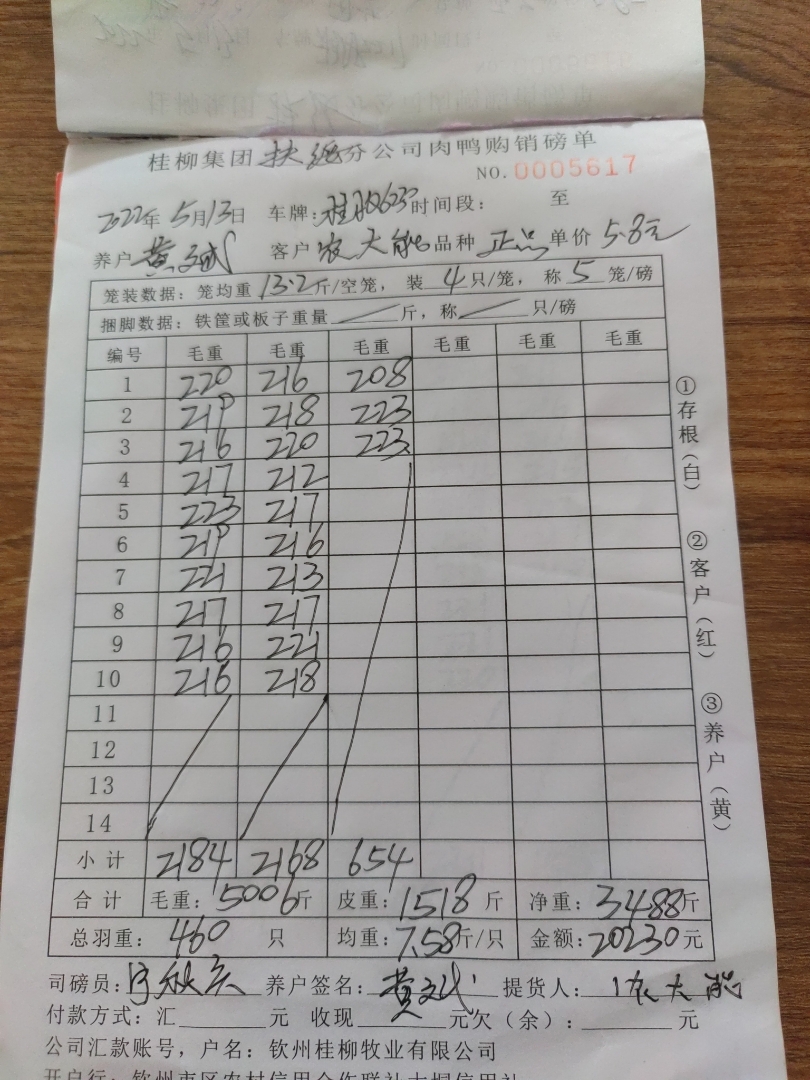 桂柳集团扶绥分公司肉鸭购销磅单
NO. 0005617
2022年 5月13日 车牌: 时间段: 至
养户 黄斌 客户 农大能 品种 正品 单价 5.8元
笼装数据: 笼均重 13.2 斤/空笼, 装 4 只/笼, 称 5 笼/磅
捆脚数据: 铁筐或板子重量 斤, 称 只/磅
编号 毛重 毛重 毛重 毛重 毛重 毛重
1 220 216 208
2 219 218 223
3 216 220 223
4 217 212
5 223 217
6 219 216
7 221 213
8 217 217
9 216 221
10 216 218
11
12
13
14
小计 2184 2168 654
合计 毛重: 5006斤 皮重: 1518 斤 净重: 3488斤
总羽重: 460 只 均重: 7.58斤/只 金额: 20230元
①存根(白)
②客户(红)
③养户(黄)
司磅员: 养户签名: 黄斌 提货人: 农大能
付款方式: 汇 元 收现 元欠(余): 元
公司汇款账号, 户名: 钦州桂柳牧业有限公司
开户行: 钦州市区农村信用合作联社大垌信用社